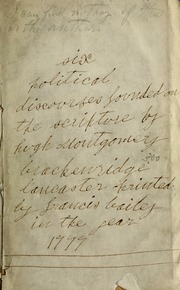 six
political
discourses founded on
the scripture by
hugh Montgomery
brackenridge
lancaster printed
by francis bailey
in the year
1779